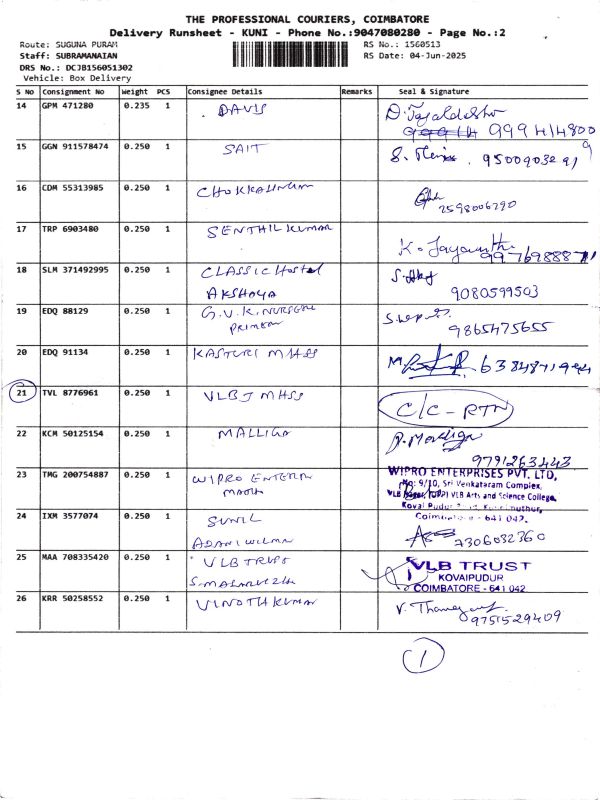 THE PROFESSIONAL COURIERS, COIMBATORE
Delivery Runsheet - KUNI - Phone No.:9047080280 - Page No.:2
Route: SUGUNA PURAM
RS No.: 1560513
Staff: SUBRAMANAIAN
RS Date: 04-Jun-2025
DRS No.: DCJB156051302
Vehicle: Box Delivery
S No Consignment No Weight PCS Consignee Details Remarks Seal & Signature
14 GPM 471280 0.235 1 DAVIS
9994414800
15 GGN 911578474 0.250 1 SAIT
16 CDM 55313985 0.250 1 CHOKKALINGAM
2598006290
17 TRP 6903480 0.250 1 SENTHIL KUMAR
K. Jayanthi
18 SLM 371492995 0.250 1 CLASSIC Hostel
AKSHAYA
9080599503
19 EDQ 88129 0.250 1 G.V.K. NURSERY
PRIMARY
9865475655
20 EDQ 91134 0.250 1 KASTURI MHSS
21 TVL 8776961 0.250 1 VLBJ MHSS C/C - RTN
22 KCM 50125154 0.250 1 MALLIGA
9791263443
23 TMG 200754887 0.250 1 WIPRO ENTERPR
WIPRO ENTERPRISES PVT. LTD,
No: 9/10, Sri Venkataram Complex,
VLB Arts and Science College,
Kovai Pudur
Coimbatore - 641 042.
24 IXM 3577074 0.250 1 SUNIL
7306032360
25 MAA 708335420 0.250 1 VLB TRUST
VLB TRUST
KOVAIPUDUR
COIMBATORE - 641 042
26 KRR 50258552 0.250 1 VINOTH KUMAR
9751529409
1